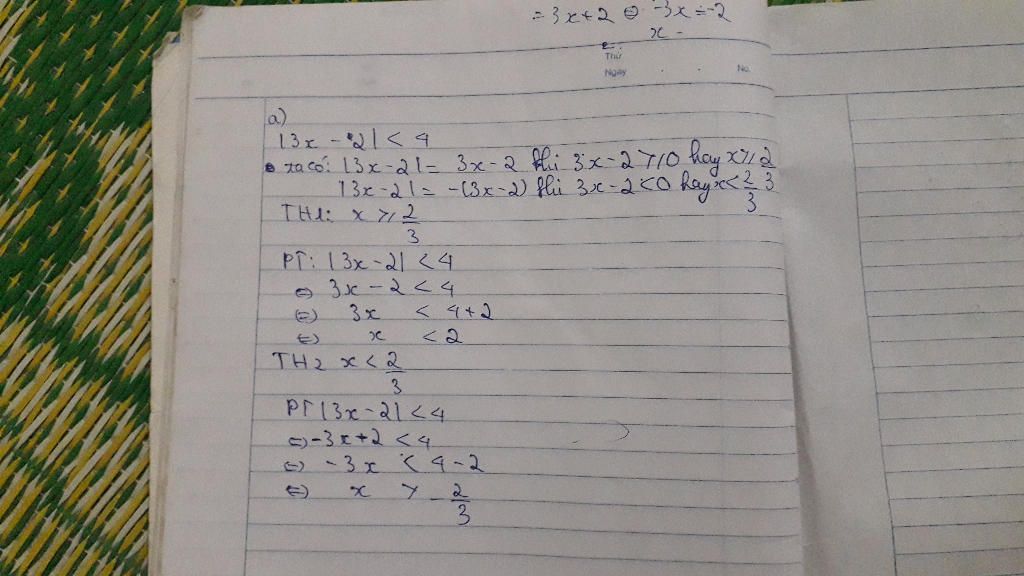 = 3x+2 ⇔ -3x = -2
x =
Thứ
Ngày . . No.
a)
|3x - 2| < 4
• ta có: |3x-2| = 3x-2 khi 3x-2 ⩾ 0 hay x ⩾ 2/3
|3x-2| = -(3x-2) khi 3x-2 < 0 hay x < 2/3
TH1: x ⩾ 2/3
PT: |3x-2| < 4
⇔ 3x - 2 < 4
⇔ 3x < 4+2
⇔ x < 2
TH2 x < 2/3
PT |3x-2| < 4
⇔ -3x+2 < 4
⇔ -3x < 4-2
⇔ x > -2/3